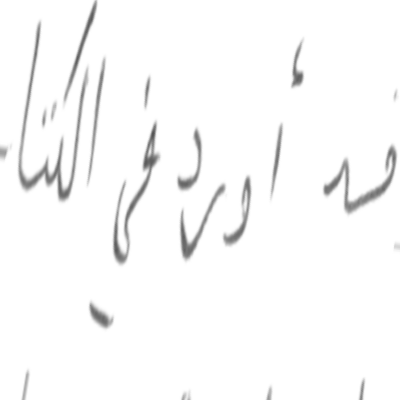 قد أورد في الكتا